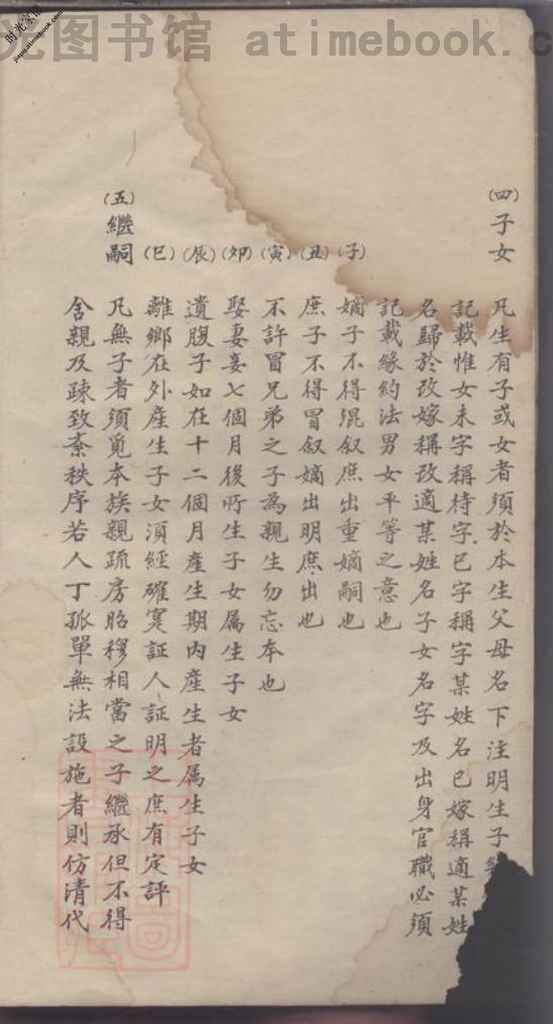 光图书馆 atimebook.c
时光家馆
(四)子女
凡生有子或女者須於本生父母名下注明生子
記載惟女未字稱待字已字稱字某姓名已嫁稱適某姓
名歸於改嫁稱改適某姓名子女名字及出身官職必須
記載緣約法男女平等之意也
(子)嫡子不得混叙庶出重嫡嗣也
(丑)庶子不得冒叙嫡出明庶出也
(寅)不許冒兄弟之子為親生勿忘本也
(卯)娶妻妾七個月後所生子女属生子女
(辰)遺腹子如在十二個月產生期內產生者属生子女
(巳)離鄉在外產生子女須經確寔証人証明之庶有定評
(五)繼嗣
凡無子者須覓本族親疏房昭穆相當之子繼承但不得
舍親及疎致紊秩序若人丁孤單無法設施者則仿清代